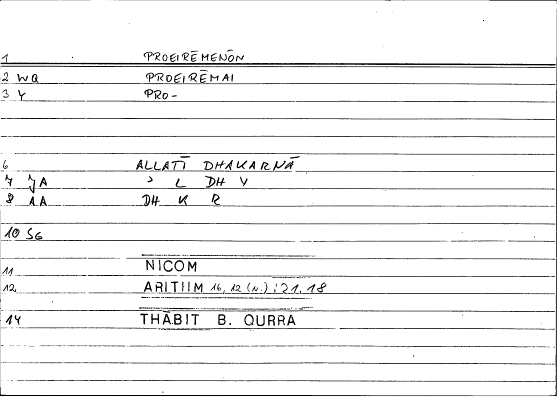 1 PROEIRĒMENŌN
2 WQ PROEIRĒMAI
3 Y PRO-
6 ALLATĪ DHAKARNĀ
7 JA ʾ L DH Y
8 AA DH K R
10 SG
11 NICOM
12 ARITHM 16, 12 (N.) : 21, 18
14 THĀBIT B. QURRA